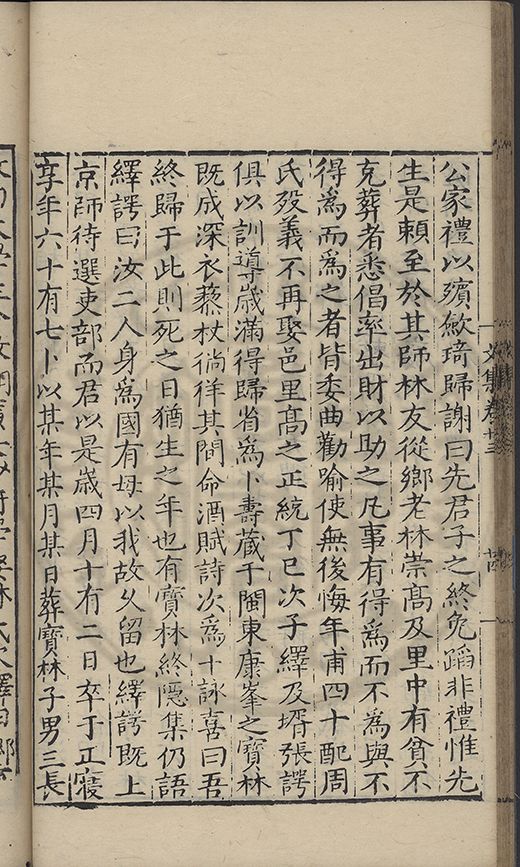 公家禮以殯歛琦歸謝曰先君子之終免蹈非禮惟先
生是頼至於其師林友從鄉老林崇髙及里中有貧不
克葬者悉倡率出財以助之凡事有得為而不為與不
得為而為之者皆委曲勸喻使無後悔年甫四十配周
氏殁義不再娶邑里髙之正統丁巳次子繹及壻張諤
俱以訓導歳滿得歸省為卜壽藏于閩東康峯之寳林
既成深衣藜杖徜徉其間命酒賦詩次為十詠喜曰吾
終歸于此則死之日猶生之年也有寳林終隠集仍語
繹諤曰汝二人身為國有毋以我故乆留也繹諤既上
京師待選吏部而君以是歳四月十有二日卒于正寢
享年六十有七卜以某年某月某日葬寳林子男三長
文集卷十三
十四